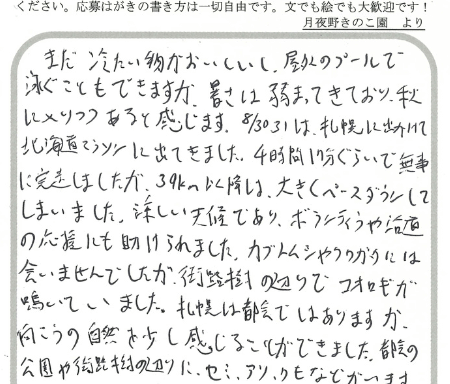 ください。応募はがきの書き方は一切自由です。文でも絵でも大歓迎です！
月夜野きのこ園　より
まだ冷たい物がおいしいし、屋外のプールで
泳ぐこともできますが、暑さは弱まってきており、秋
に入りつつあると感じます。8/30 31は、札幌に出かけて
北海道マラソンに出てきました。4時間17分ぐらいで無事
に完走しましたが、39km以降は、大きくペースダウンして
しまいました。涼しい天候であり、ボランティアや沿道
の応援にも助けられました。カブトムシやクワガタには
会いませんでしたが、街路樹の辺りでコオロギが
鳴いていました。札幌は都会ではありますが、
向こうの自然を少し感じることができました。都会の
公園や街路樹の辺りに、セミ、アリ、クモなどがいます